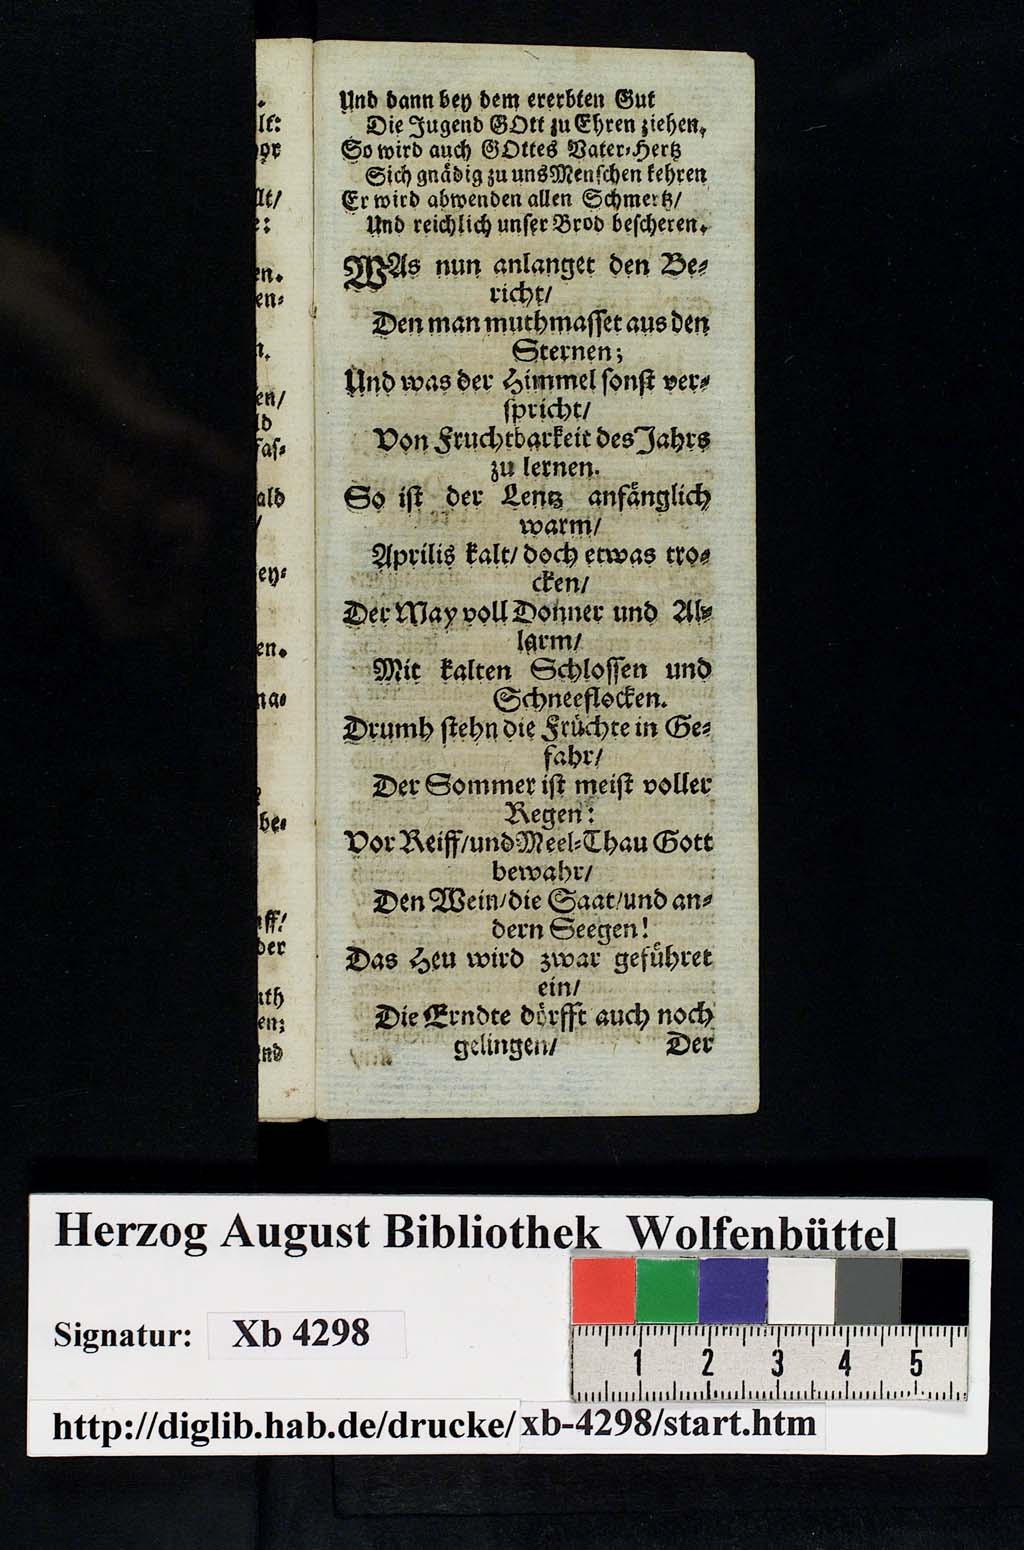 Und dann bey dem ererbten Gut
Die Jugend GOtt zu Ehren ziehen.
So wird auch GOttes Vater-Hertz
Sich gnädig zu uns Menschen kehren
Er wird abwenden allen Schmertz/
Und reichlich unser Brod bescheren.
WAs nun anlanget den Be-
richt/
Den man muthmasset aus den
Sternen;
Und was der Himmel sonst ver-
spricht/
Von Fruchtbarkeit des Jahrs
zu lernen.
So ist der Lentz anfänglich
warm/
Aprilis kalt/ doch etwas tro-
cken/
Der May voll Donner und Al-
larm/
Mit kalten Schlossen und
Schneeflocken.
Drumb stehn die Früchte in Ge-
fahr/
Der Sommer ist meist voller
Regen:
Vor Reiff/und Meel-Thau Gott
bewahr/
Den Wein/die Saat/und an-
dern Seegen!
Das Heu wird zwar geführet
ein/
Die Erndte dörfft auch noch
gelingen/ Der
Herzog August Bibliothek Wolfenbüttel
Signatur: Xb 4298
1 2 3 4 5
http://diglib.hab.de/drucke/xb-4298/start.htm